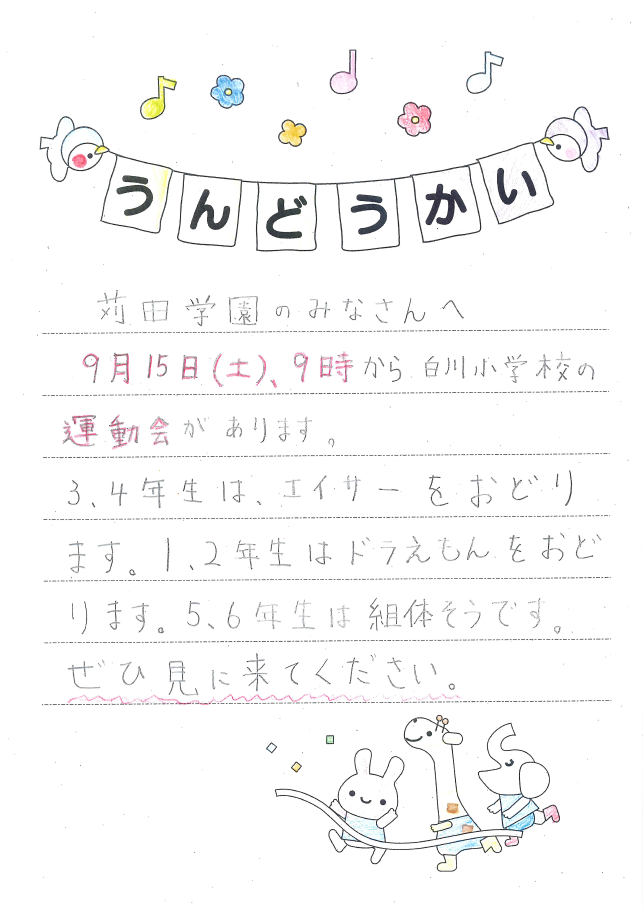 うんどうかい
苅田学園のみなさんへ
9月15日(土)、9時から白川小学校の
運動会があります。
3、4年生は、エイサーをおどり
ます。1、2年生はドラえもんをおど
ります。5、6年生は組体そうです。
ぜひ見に来てください。